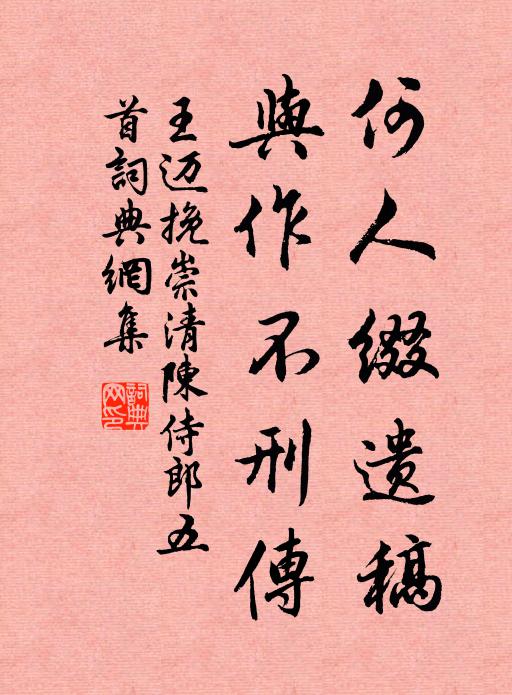 何人缀遗稿
與作不刑傳
王迈挽崇清陳侍郎五
首詞典網集
詞典
网印